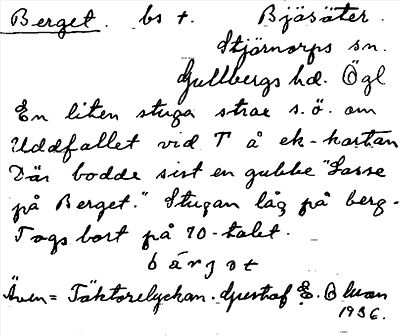 Berget. bs +. Bjäsäter.
Stjärnorps sn.
Gullbergs hd. Ögl
En liten stuga strax s.ö. om
Uddfallet vid T å ek-kartan
Där bodde sist en gubbe "Lasse
på Berget." Stugan låg på berg.
Togs bort på 70-talet.
bärgət
Även = Täktorelyckan. Gustaf E.
1936.